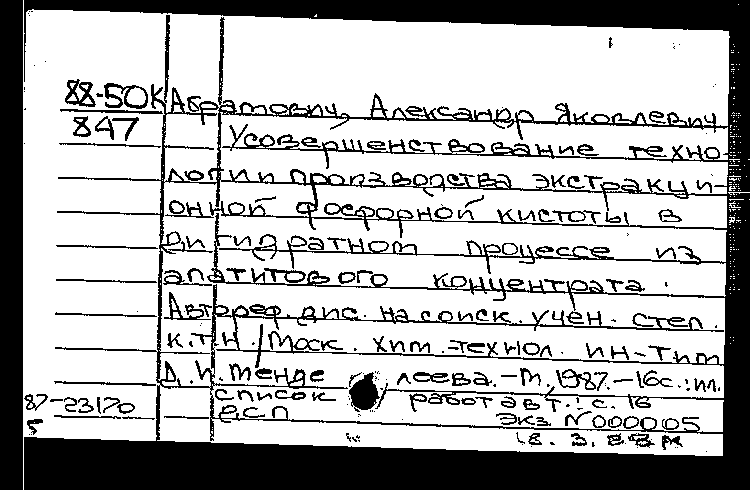 88-50К Абрамович, Александр Яковлевич
847 Усовершенствование техно-
логии производства экстракци-
онной фосфорной кислоты в
дигидратном процессе из
апатитового концентрата.
Автореф. дис. на соиск. учен. степ.
к.т.н. / Моск. хим.-технол. ин-т им
Д. И. Менде леева.-М., 1987.-16с.:ил.
87-23170 список работ авт.: с. 16
5 ДСП Экз. N 000005